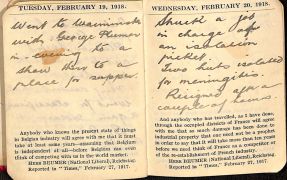 TUESDAY, FEBRUARY 19, 1918.
Went to Warminster
with George Plumer
in evening to a
show then to a
place for supper.
Anybody who knows the present state of things
in Belgian industry will agree with me that it must
take at least some years—assuming that Belgium
is independent at all—before Belgium can even
think of competing with us in the world market.
HERR BEUMER (National Liberal), Reichstag.
Reported in "Times", February 27, 1917.
WEDNESDAY, FEBRUARY 20, 1918.
Struck a job
in charge of
an isolation
picket.
Two huts isolated
for meningitis.
Resigned after a
couple of hours.
And anybody who has travelled, as I have done,
through the occupied districts of France will agree
with me that so much damage has been done to
industrial property that one need not be a prophet
in order to say that it will take more than ten years
before we need think of France as a competitor or
of the re-establishment of French industry.
HERR BEUMER (National Liberal), Reichstag.
Reported in "Times", February 27, 1917.